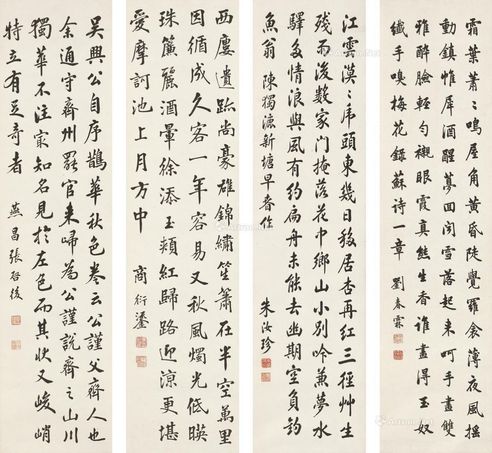 霜葉蕭〻鳴屋角黃昏陡覺羅衾薄夜風搖
動鎮帷犀酒醒夢回聞雪落起來呵手畫雙
雅醉臉輕勻襯眼霞真態生香誰畫得玉奴
纖手嗅梅花 錄蘇詩一章 劉春霖
江雲漠〻虎頭東幾日移居杏再紅三徑艸生
殘雨後數家門掩落花中鄉山小別吟兼夢水
驛多情浪與風有約扁舟未能去幽期空負釣
魚翁 陳獨漉新塘早春作 朱汝珍
西廛遺跡尚豪雄錦繡笙簫在半空萬里
因循成久客一年容易又秋風燭光低映
珠簾麗酒暈徐添玉頰紅歸路迎涼更堪
愛摩訶池上月方中 商衍鎏
吳興公自序鵲華秋色卷云公謹父齊人也
余通守齊州罷官來歸為公謹說齊之山川
獨華不注最知名見於左色而其狀又峻峭
特立有足奇者 燕昌張啟後